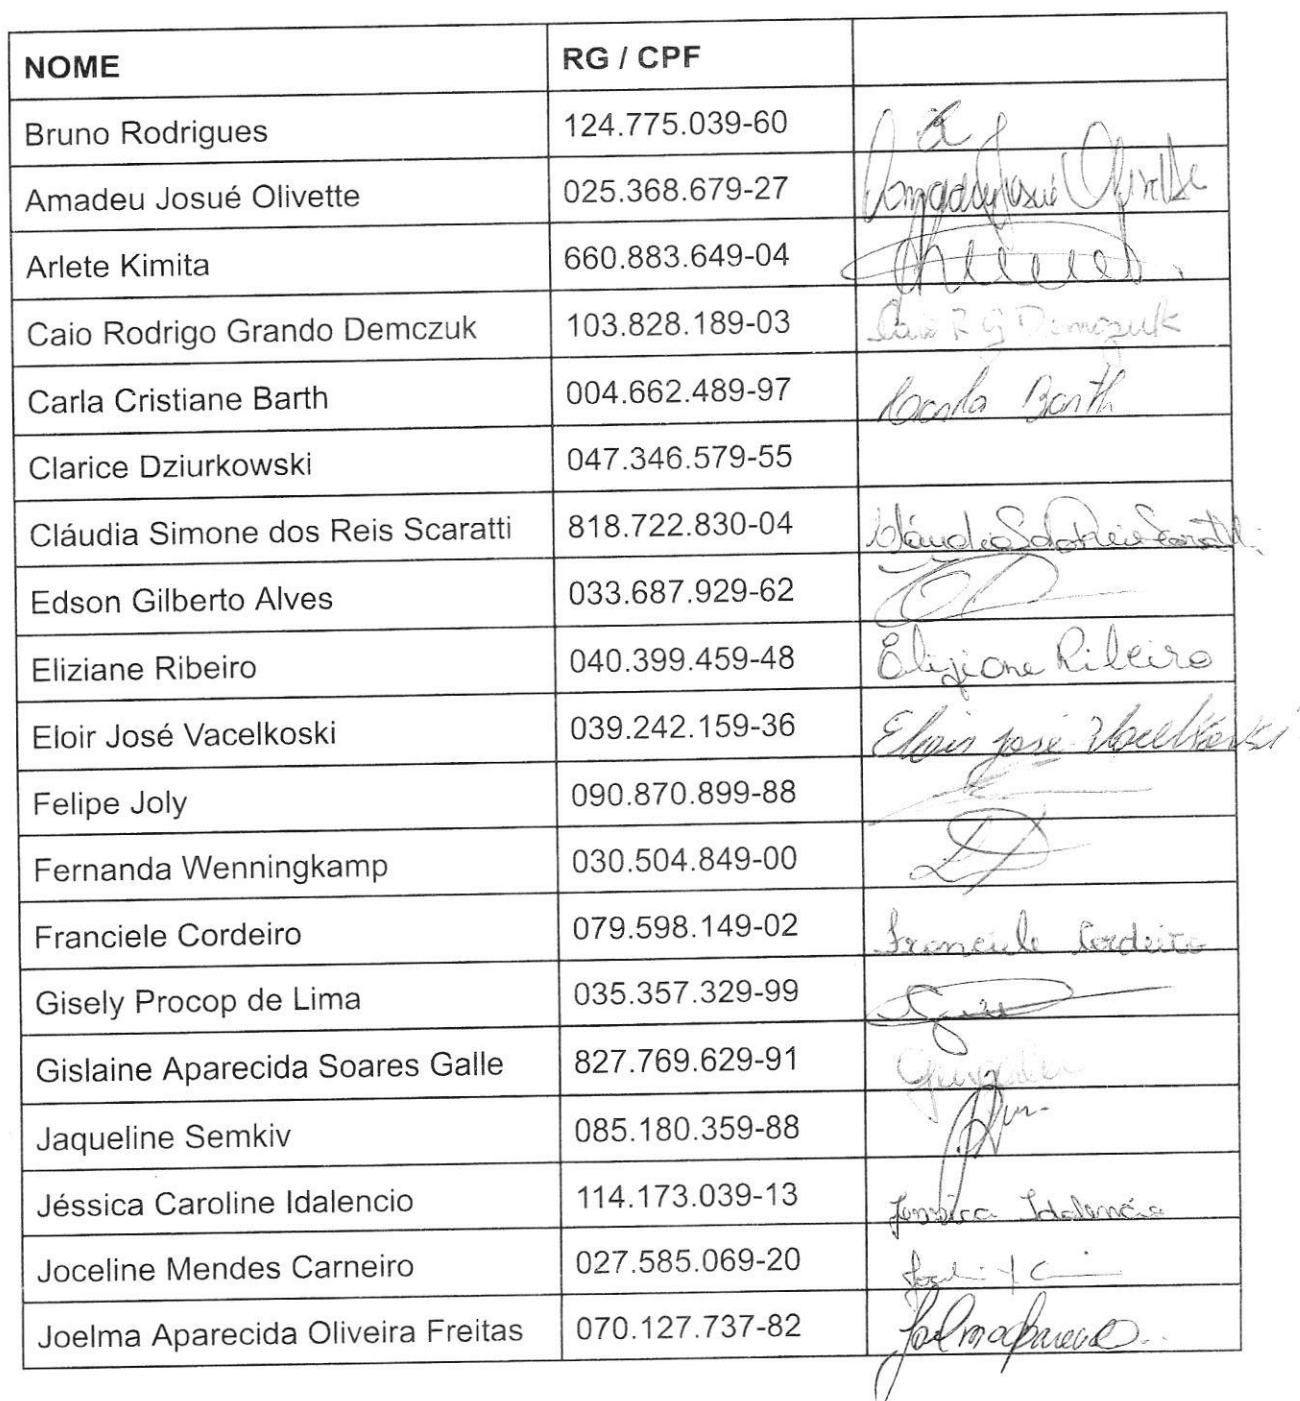 NOME RG / CPF
Bruno Rodrigues 124.775.039-60
Amadeu Josué Olivette 025.368.679-27 Amadeu Josué Olivette
Arlete Kimita 660.883.649-04
Caio Rodrigo Grando Demczuk 103.828.189-03 Caio R G Demczuk
Carla Cristiane Barth 004.662.489-97 Carla Barth
Clarice Dziurkowski 047.346.579-55
Cláudia Simone dos Reis Scaratti 818.722.830-04 Cláudia S dos Reis Scaratti
Edson Gilberto Alves 033.687.929-62
Eliziane Ribeiro 040.399.459-48 Eliziane Ribeiro
Eloir José Vacelkoski 039.242.159-36 Eloir José Vacelkoski
Felipe Joly 090.870.899-88
Fernanda Wenningkamp 030.504.849-00
Franciele Cordeiro 079.598.149-02 Franciele Cordeiro
Gisely Procop de Lima 035.357.329-99
Gislaine Aparecida Soares Galle 827.769.629-91
Jaqueline Semkiv 085.180.359-88
Jéssica Caroline Idalencio 114.173.039-13 Jéssica Idalencio
Joceline Mendes Carneiro 027.585.069-20
Joelma Aparecida Oliveira Freitas 070.127.737-82